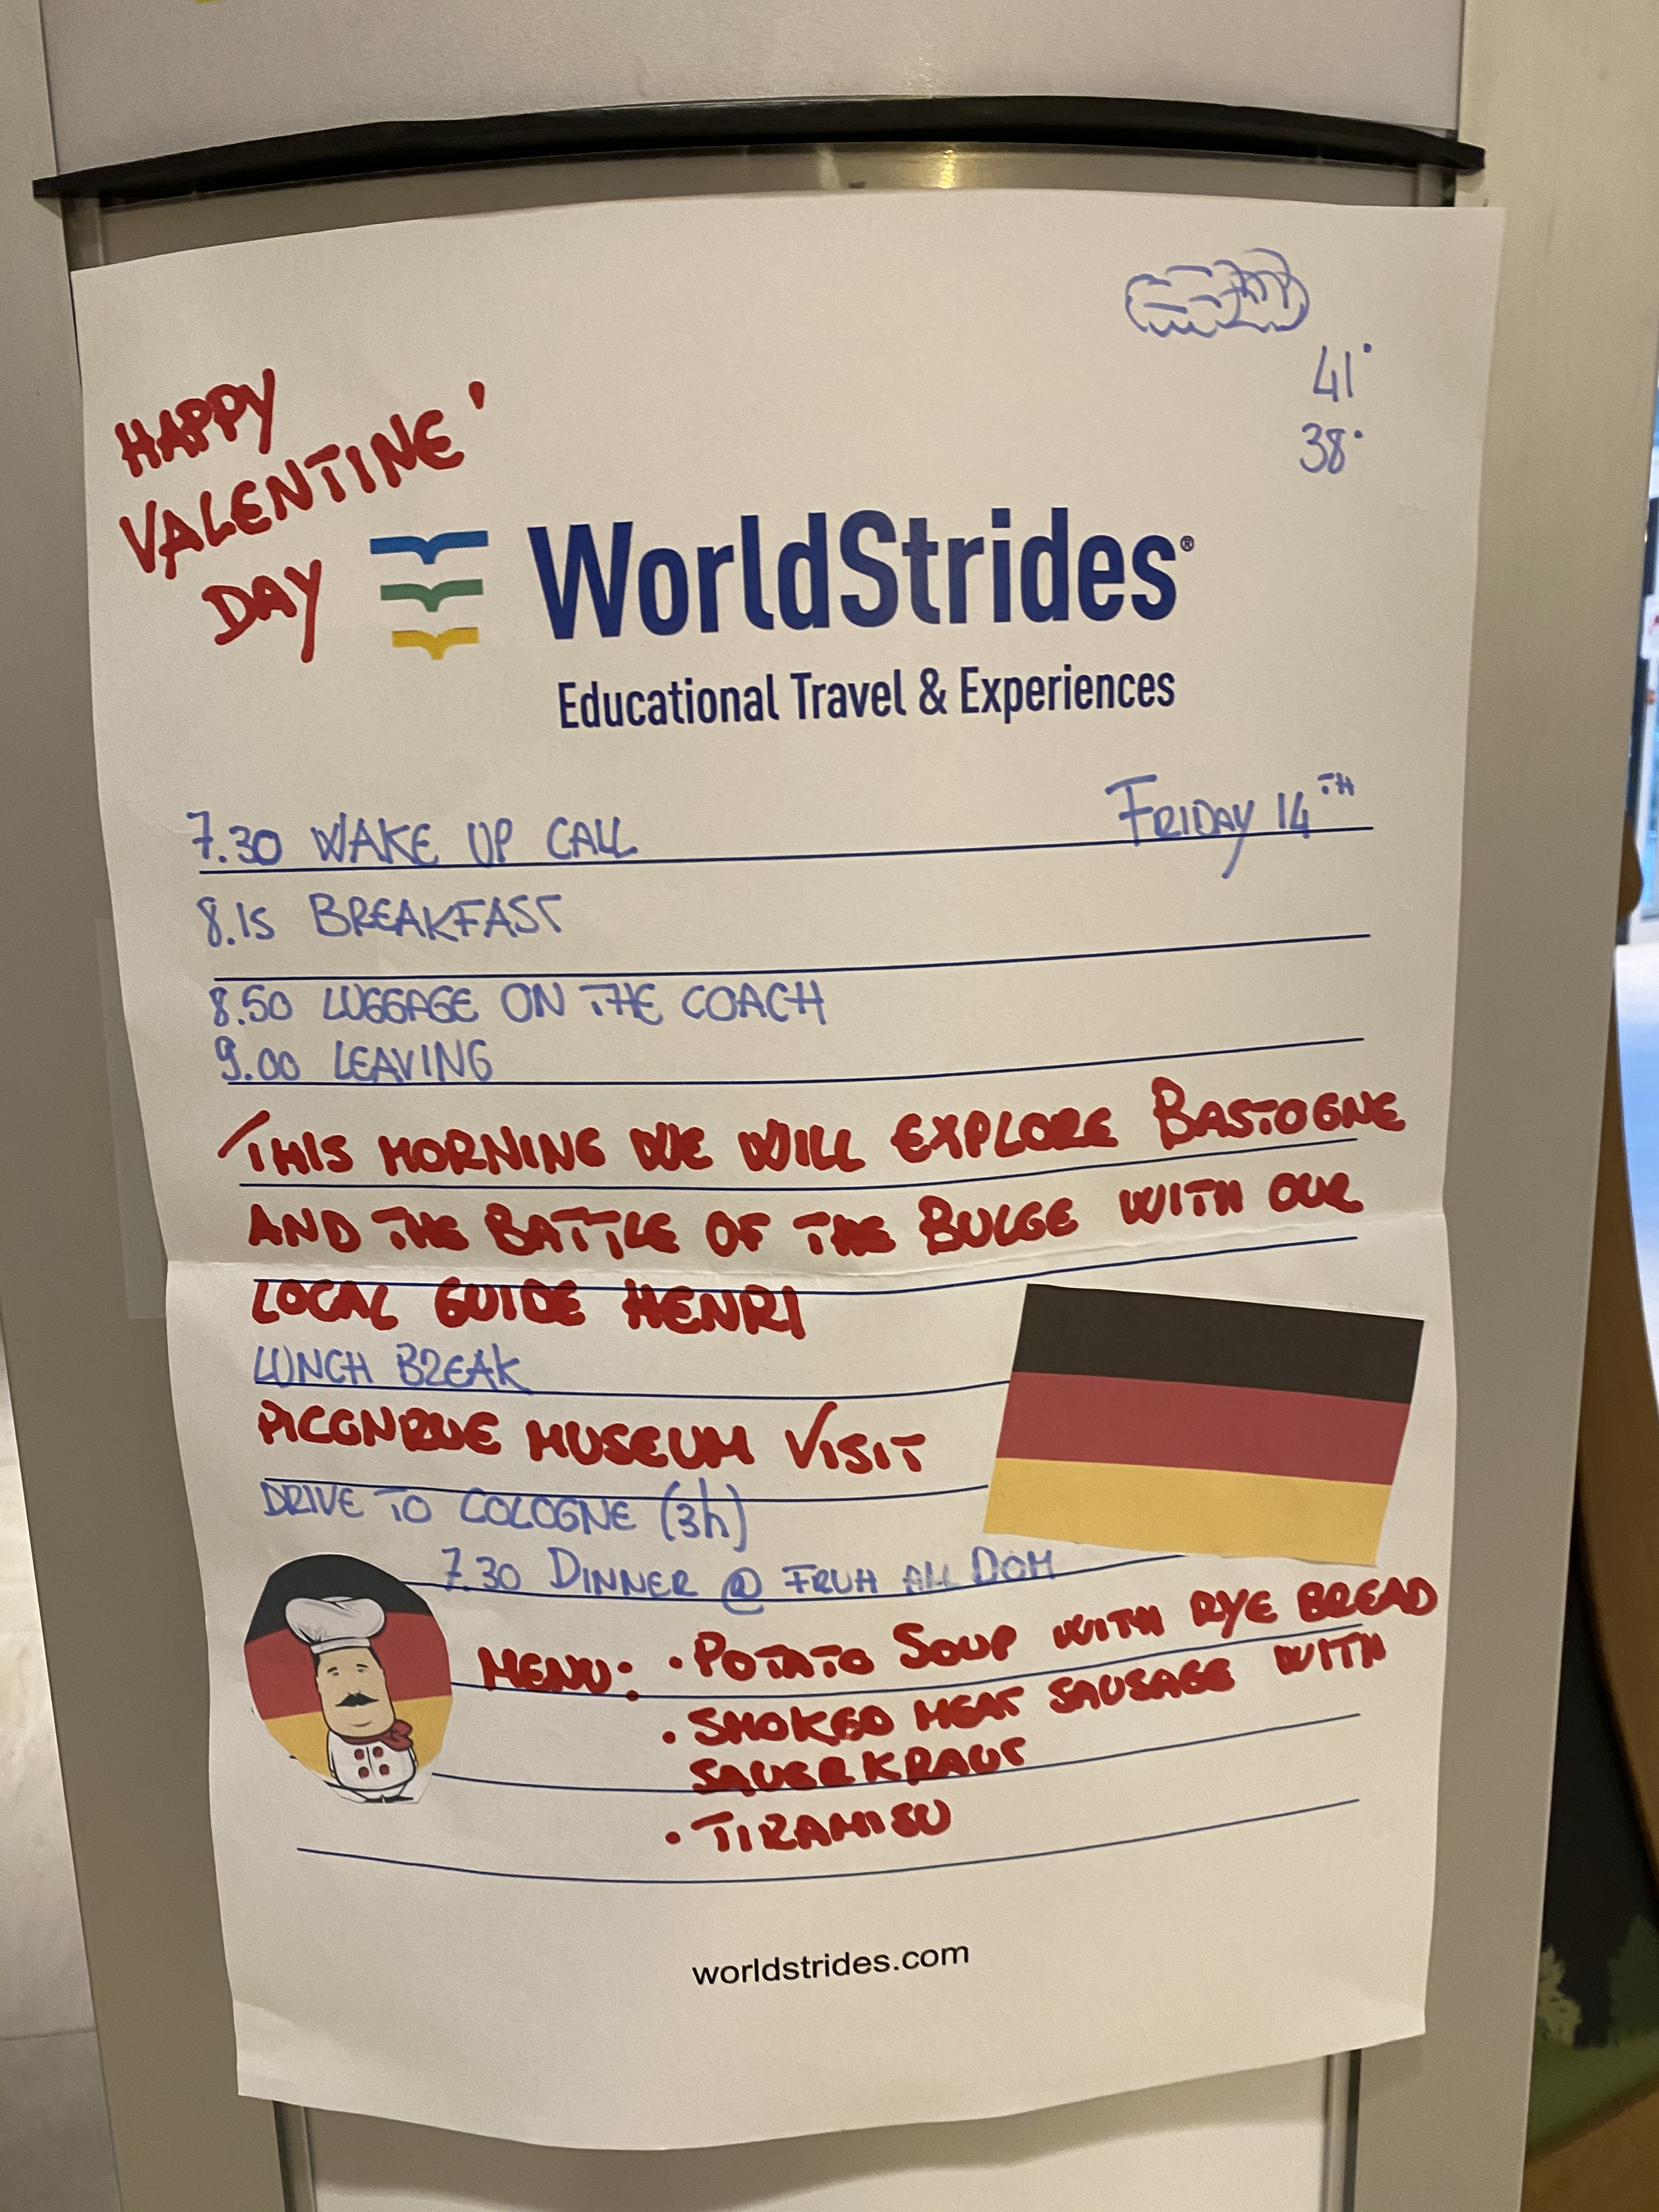 41°
38°
HAPPY
VALENTINE'
DAY
WorldStrides®
Educational Travel & Experiences
FRIDAY 14TH
7.30 WAKE UP CALL
8.15 BREAKFAST
8.50 LUGGAGE ON THE COACH
9.00 LEAVING
THIS MORNING WE WILL EXPLORE BASTOGNE
AND THE BATTLE OF THE BULGE WITH OUR
LOCAL GUIDE HENRI
LUNCH BREAK
PICONRUE MUSEUM VISIT
DRIVE TO COLOGNE (3h)
7.30 DINNER @ FRUH DOM
MENU: • POTATO SOUP WITH RYE BREAD
• SMOKED MEAT SAUSAGE WITH
SAUERKRAUT
• TIRAMISU
worldstrides.com